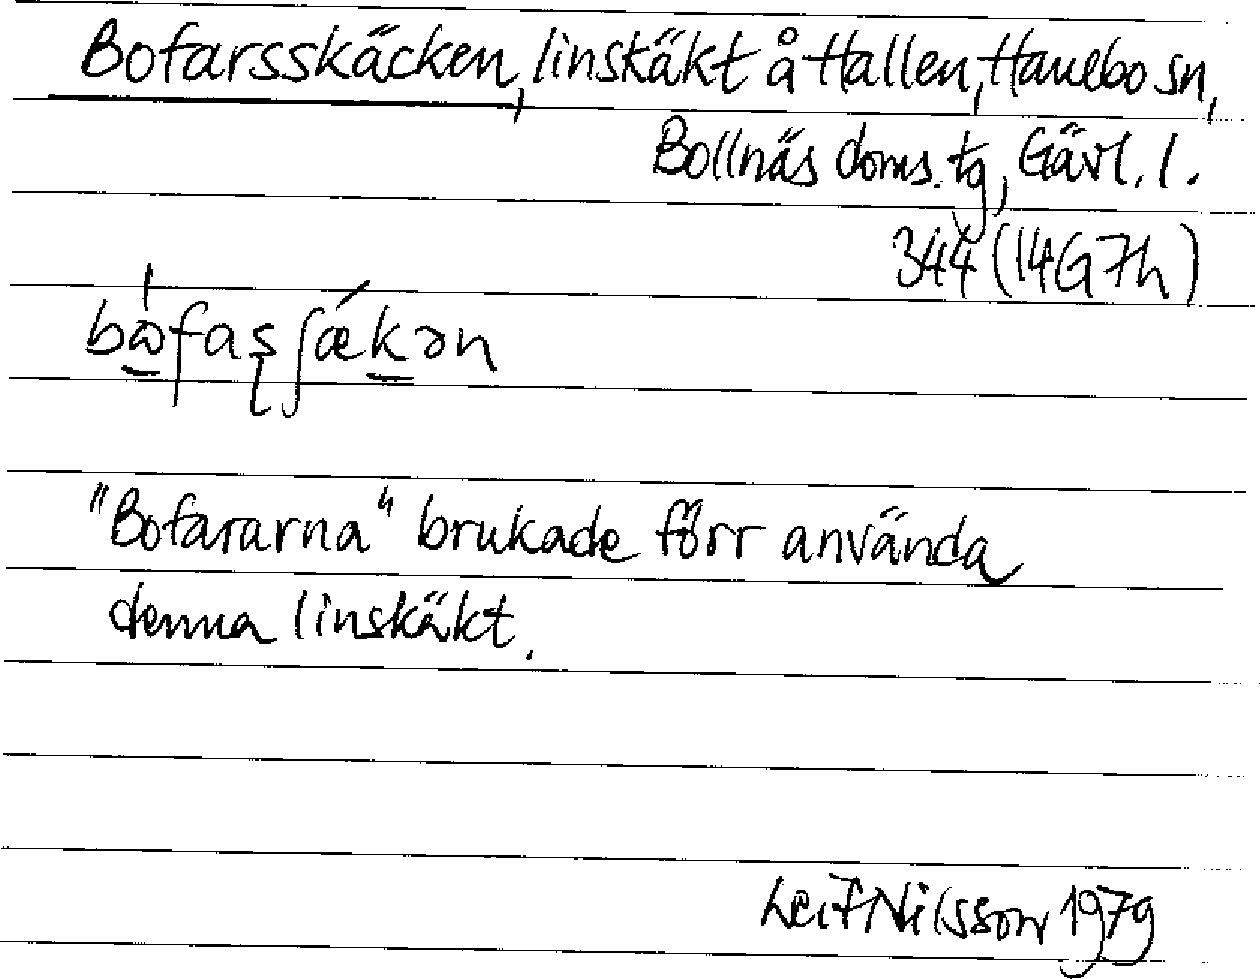 Bofarsskäcken, linskäkt å Hallen, Hanebo sn,
Bollnäs doms. tg, Gävl. l.
344 (14G7h)
"Bofararna" brukade förr använda
denna linskäkt.
Leif Nilsson 1979